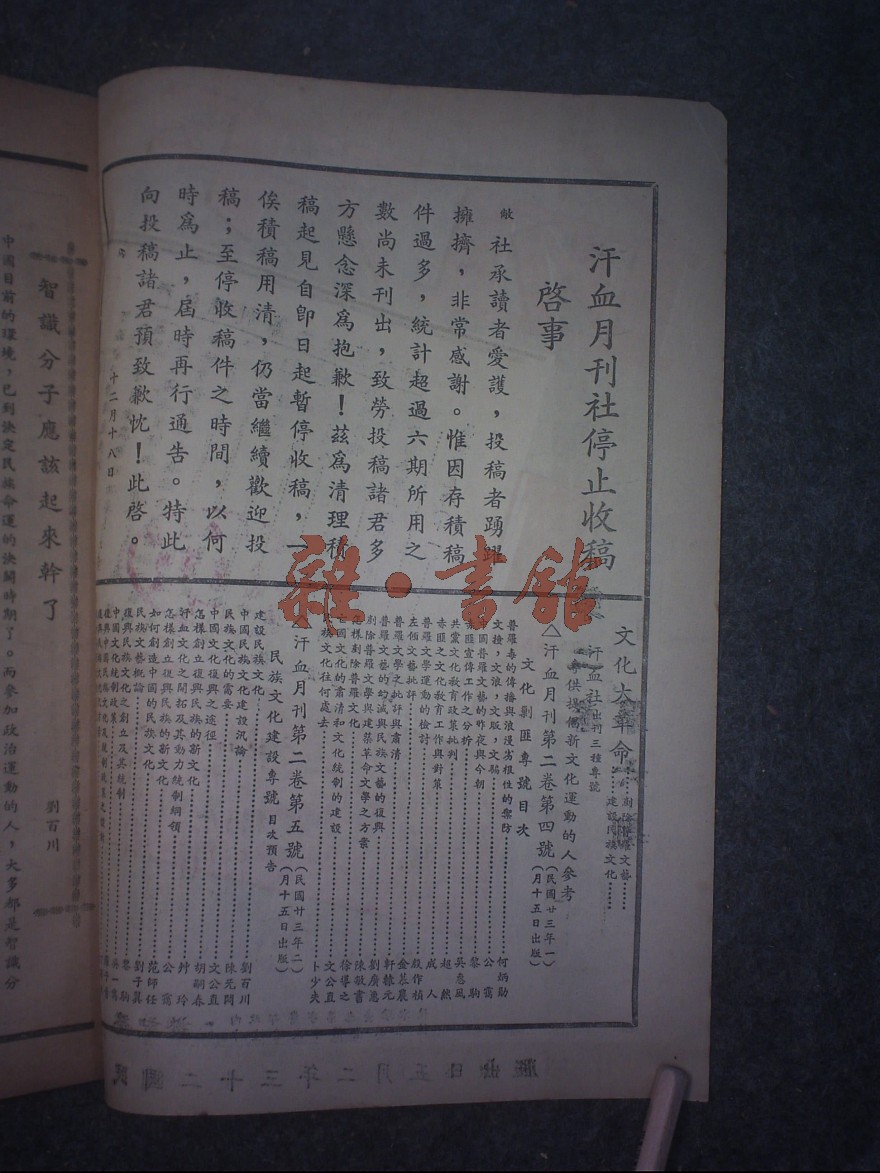 汗血月刊社停止收稿
啓事
敝社承讀者愛護，投稿者踴躍
擁擠，非常感謝。惟因存積稿
件過多，統計超過六期所用之
數尚未刊出，致勞投稿諸君多
方懸念深爲抱歉！茲爲清理積
稿起見自卽日起暫停收稿，一
俟積稿用清，仍當繼續歡迎投
稿；至停收稿件之時間，以何
時爲止，屆時再行通告。特此
向投稿諸君預致歉忱！此啓。
十二月十八日
文化大革命
剷除普羅文藝……
建設民族文化……
汗血社出刊三種專號
供提倡新文化運動的人參考
△汗血月刊第二卷第四號（民國廿三年一月十五日出版）
文化剿匪專號目次
普羅毒的傳播與浪漫劣根性的禦防……何炳勛
文檢，文浪，文販，文騙……公窩
中國普羅文藝的昨夜與今朝……黎駒
赤匪宣傳工作之分析……吳惠風
共黨文化教育政策批判……超然
赤匪之文化教育工作與對策……成人
普羅文學運動的檢討……殷作楨
左傾文藝批評……金荩晨
普羅文學之批評與肅清……軒轅元
普羅文藝的幻滅與民族文藝的復興……劉廣惠
剷除普羅文學與建築革命文學之方案……陳敬書
怎樣剷除普羅文化……徐導之
中國文化的肅清和文化統制的建設……文公直
民族文化往何處去……卜少夫
汗血月刊第二卷第五號（民國廿三年二月十五日出版）
民族文化建設專號目次預告
建設民族文化……劉百川
中國民族文化建設汎論……陳元問
民族文化的需要……文公直
中國文化復興之途徑……胡嗣春
怎樣創立復興民族的新文化……紳玲
汗血文化之開拓及其動力統制綱領……公窩
怎樣創立復興民族的新文化……范師任
如何創造中國的民族文化……劉子異
民族文藝概論……黎駒
復興民族文化之創立及其統制
中國文化統制政策
智識分子應該起來幹了
劉百川
中國目前的環境，已到決定民族命運的決鬭時期了。而參加政治運動的人，大多都是智識分
雜·書館